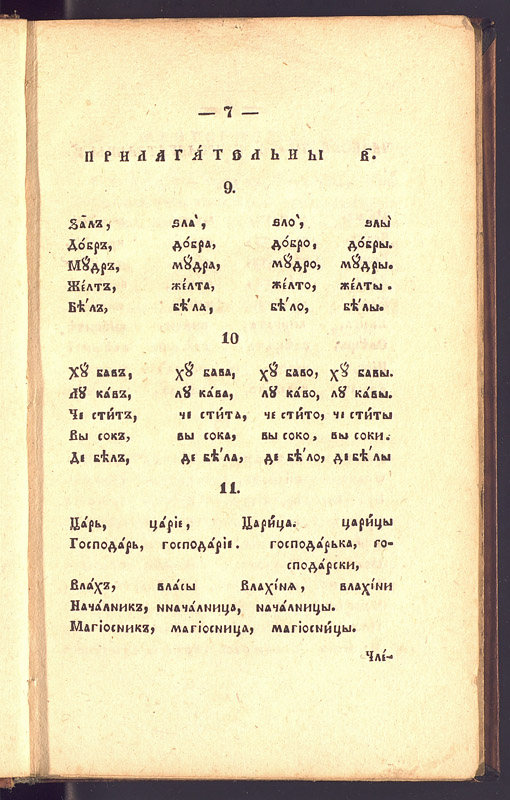 — 7 —
ПРИЛАГА́ТЕЛЬНЫ в҃.
9.
Ѕа́лъ, ѕла̀, ѕло̀, ѕлы̀
До́бръ, до́бра, до́бро, до́бры.
Мꙋ́дръ, мꙋ́дра, мꙋ́дро, мꙋ́дры.
Же́лтъ, же́лта, же́лто, же́лты.
Бѣ́лъ, бѣ́ла, бѣ́ло, бѣ́лы.
10
Хꙋ́ бавъ, хꙋ́ бава, хꙋ́ баво, хꙋ́ бавы.
Лꙋ ка́въ, лꙋ ка́ва, лꙋ ка́во, лꙋ ка́вы.
Че сти́тъ, че сти́та, че сти́то, че сти́ты
Вы сокъ, вы сока, вы соко, вы соки.
Де бѣ́лъ, де бѣ́ла, де бѣ́ло, де бѣ́лы
11.
Ца́рь, ца́рїе, Цари́ца. цари́цы
Господа́рь, господа́рїе. господа́рька, го-
сподарски,
Вла́хъ, вла́сы Влахі́нѧ, влахі́ни
Нача́лникъ, ннача́лница, нача́лницы.
Магіо́сникъ, магіо́сница, магіосни́цы.
Чле́-